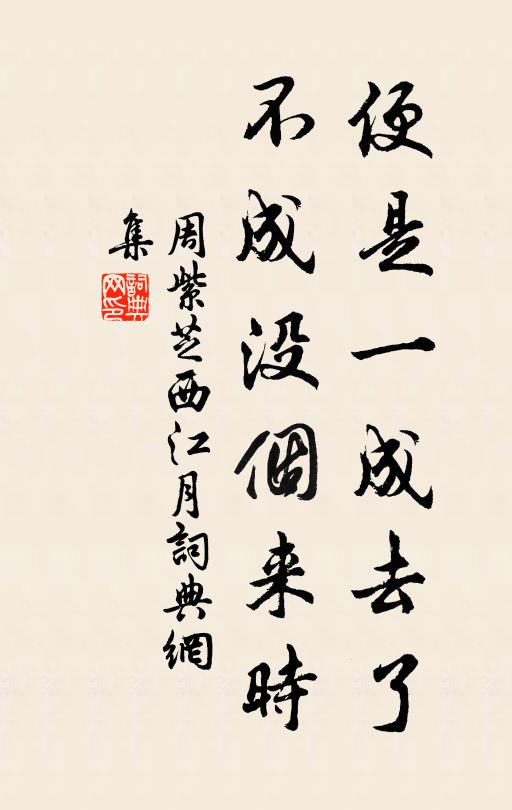 便是一成去了
不成没個来時
周紫芝西江月詞典網
集
詞典
网印